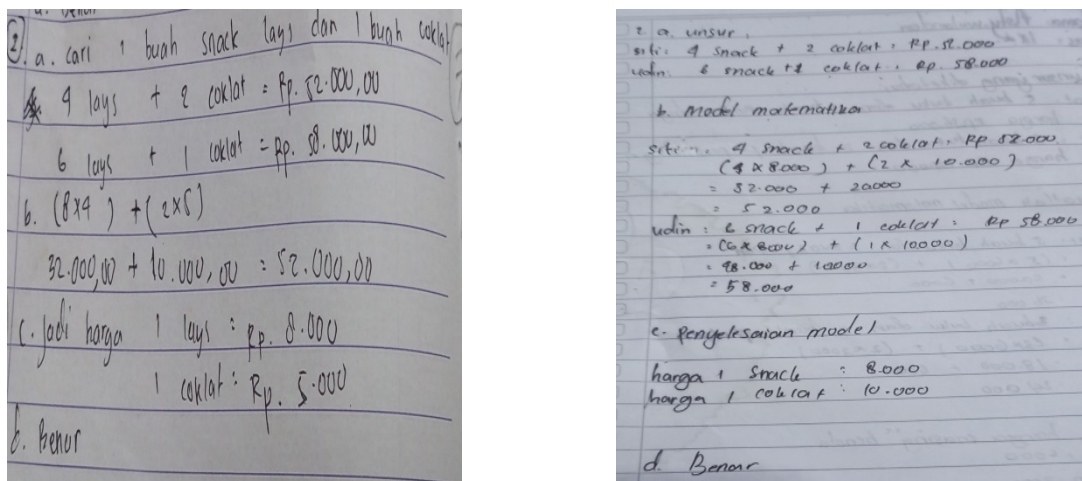 2. a. cari 1 buah snack lays dan 1 buah coklat
4 lays + 2 coklat = Rp. 52.000,00
6 lays + 1 coklat = Rp. 58.000,00
b. (8x4) + (2x5)
32.000,00 + 10.000,00 = 52.000,00
c. Jadi harga 1 lays : Rp. 8.000
1 coklat : Rp. 5.000
d. Benar
2. a. unsur.
siti : 4 snack + 2 coklat : Rp. 52.000
udin : 6 snack + 1 coklat : Rp. 58.000
b. Model matematika
siti : 4 snack + 2 coklat : Rp 52.000
(4 x 8.000) + (2 x 10.000)
= 32.000 + 20000
= 52.000
udin : 6 snack + 1 coklat : Rp 58.000
= (6 x 8000) + (1 x 10000)
= 48.000 + 10000
= 58.000
c. Penyelesaian model
harga 1 snack : 8.000
harga 1 coklat : 10.000
d. Benar